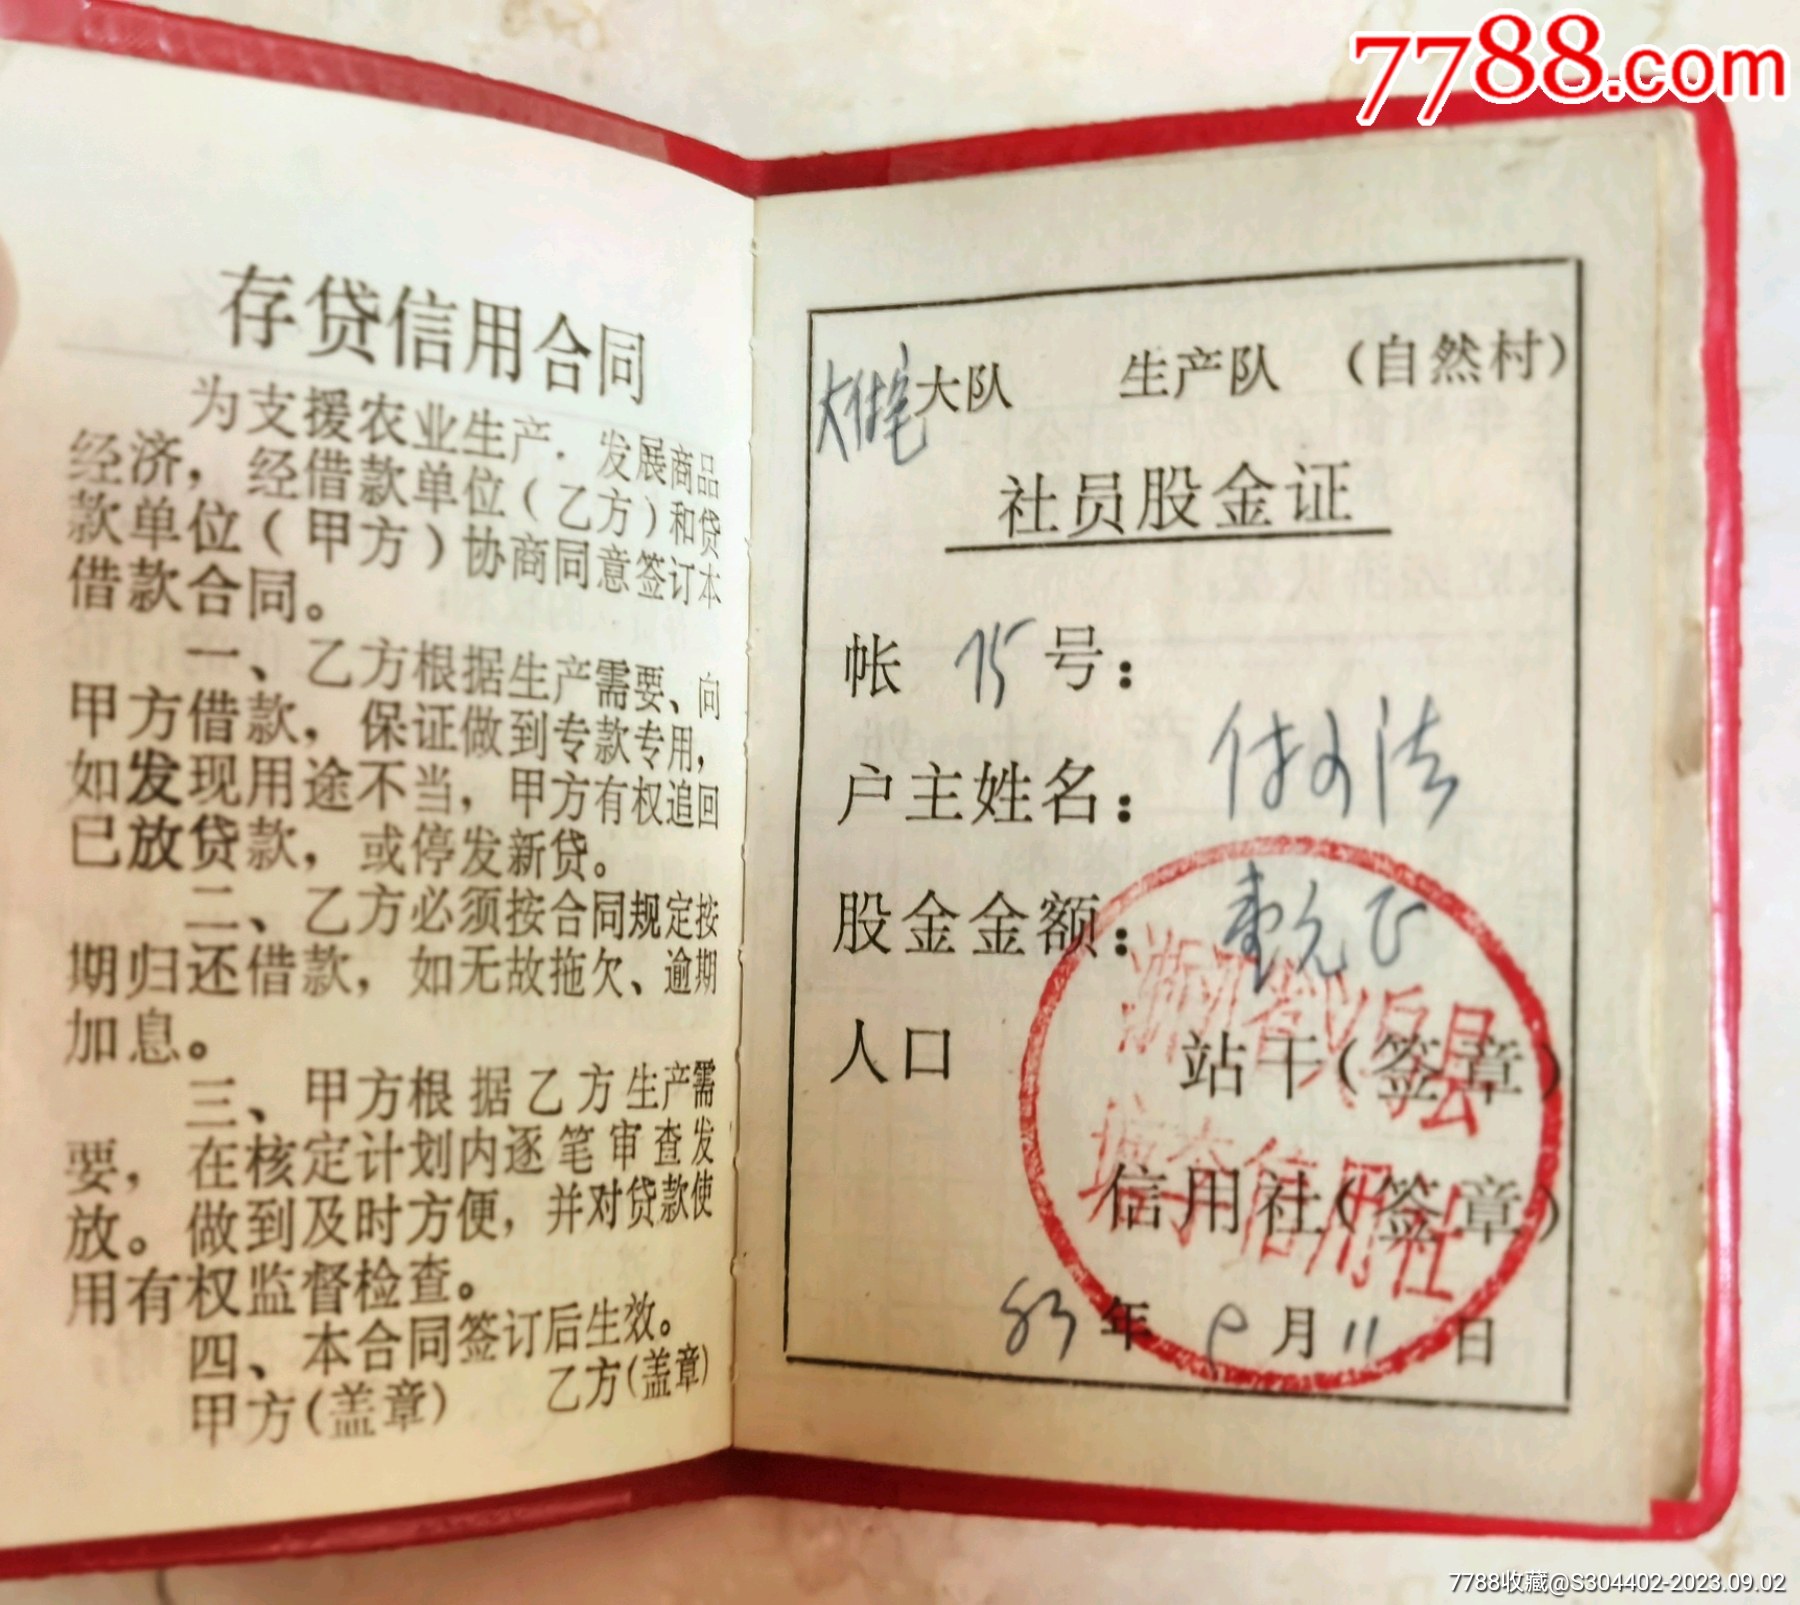 7788.com
存贷信用合同
为支援农业生产．发展商品
经济，经借款单位（乙方）和贷
款单位（甲方）协商同意签订本
借款合同。
一、乙方根据生产需要、向
甲方借款，保证做到专款专用，
如发现用途不当，甲方有权追回
已放贷款，或停发新贷。
二、乙方必须按合同规定按
期归还借款，如无故拖欠、逾期
加息。
三、甲方根据乙方生产需
要，在核定计划内逐笔审查发
放。做到及时方便，并对贷款使
用有权监督检查。
四、本合同签订后生效。
甲方（盖章） 乙方（盖章）
大队 生产队 （自然村）
社员股金证
帐 75 号：
户主姓名：
股金金额： 壹元正
人口 站干（签章）
信用社（签章）
浙江省 县
信用社
83 年 月 11 日
7788收藏@S304402-2023.09.02